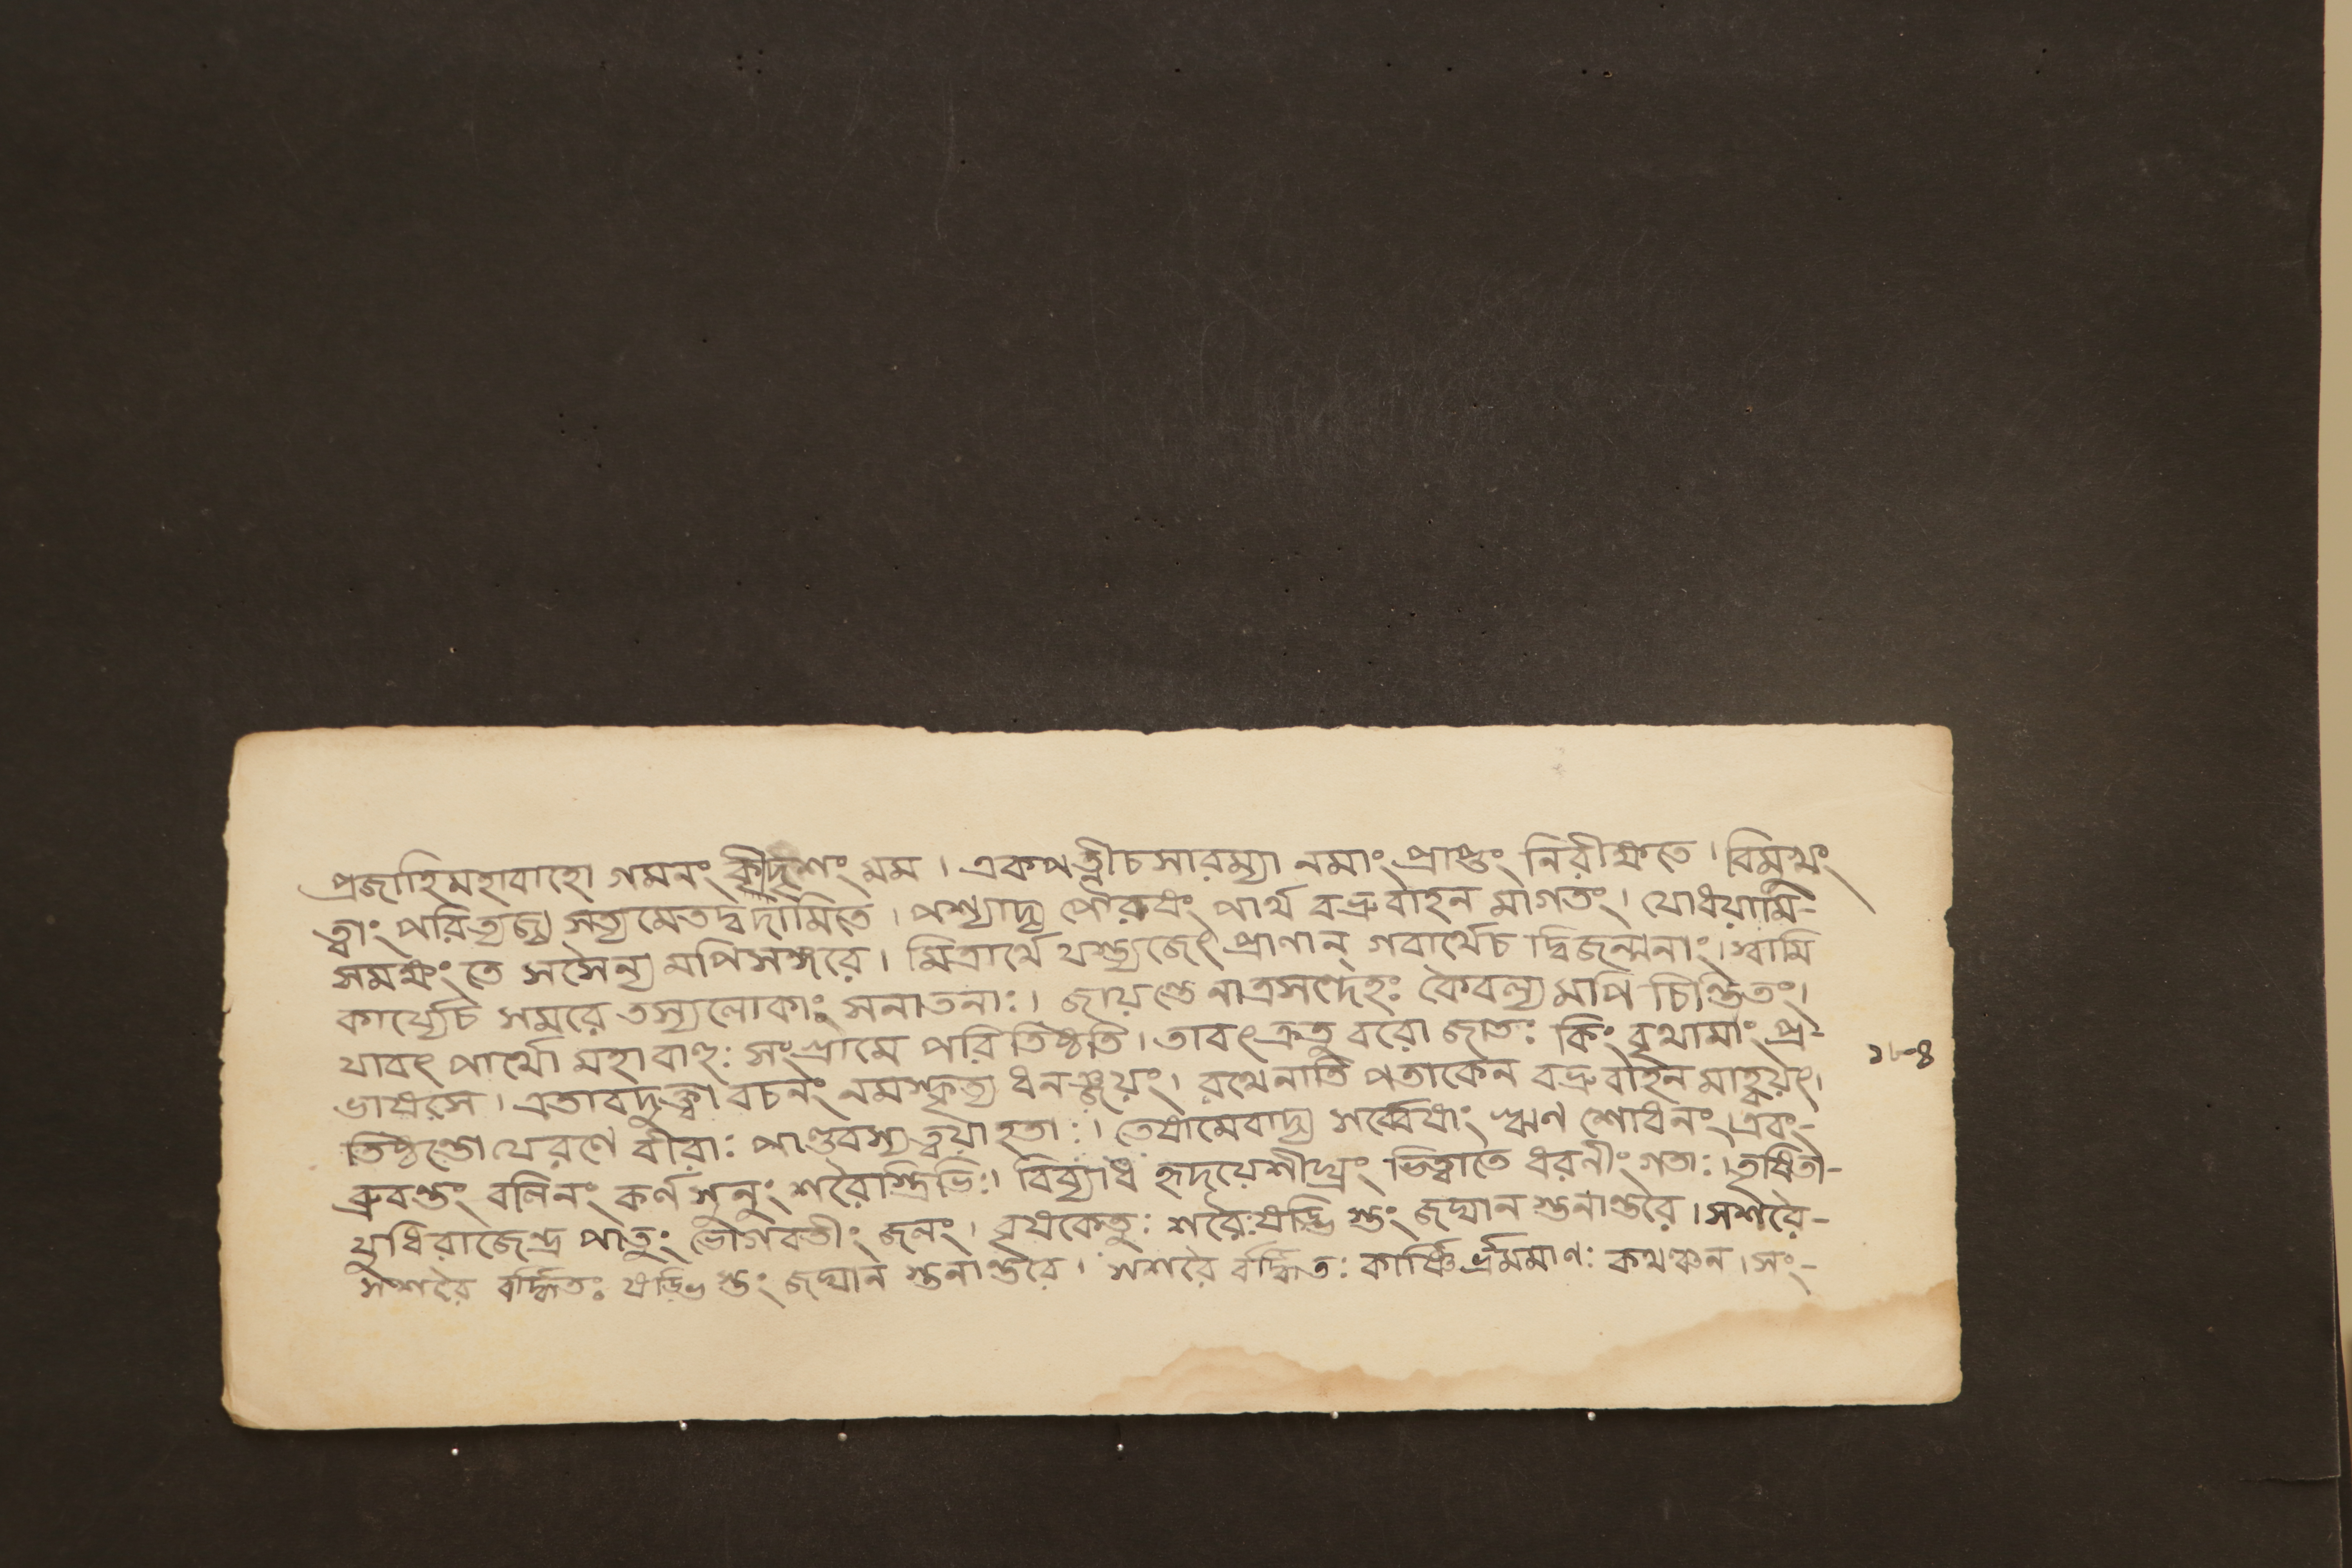 প্রজাহিমহাবাহো গমনং কীদৃশং মম । একপত্নীচসারম্যা নমাং প্রাপ্তং নিরীক্ষতে । বিমুখং
ত্বাং পরিত্যজ্য সত্যমেতদ্বদামিতে । পশ্যাদ্য পৌরুষং পার্থ বভ্রুবাহন মাগতং । যোধয়ামি-
সমক্ষং তে সসৈন্য মপিসঙ্গরে । মিত্রার্থে যস্ত্যজেৎ প্রাণান্ গবার্থেচ দ্বিজন্মনাং । স্বামি
কার্য্যেচ সমরে তস্যলোকাঃ সনাতনাঃ । জায়ন্তে নাত্রসন্দেহঃ কৈবল্য মপি চিন্তিতং ।
যাবৎ পার্থো মহাবাহুঃ সংগ্রামে পরিতিষ্ঠতি । তাবৎ ক্রতু বরো জাতঃ কিং বৃথামাং প্র-
ভাষরস । এতাবদুক্ত্বা বচনং নমস্কৃত্য ধনঞ্জয়ং । রথেনাতি পতাকেন বভ্রুবাহন মাহ্বয়ৎ ।
তিষ্ঠন্তো যেরণে বীরাঃ পাণ্ডবস্য ত্বয়াহতাঃ । তেষামেবাদ্য সর্ব্বেষাং ঋণ শোধনং । এবং-
ব্রুবন্তং বলিনং কর্ণসুনুং শরৈস্ত্রিভিঃ । বিব্যাধ হৃদয়েশীঘ্রং ভিত্বাতে ধরনীং গতাঃ । তৃষিতা-
যুধিরাজেন্দ্র পাতুং ভোগবতীং জলং । বৃষকেতুঃ শরৈঃষড্ভি স্তং জঘান স্তনান্তরে । সশরৈ-
সশরৈ র্বর্দ্ধিতঃ ষড্ভি স্তং জঘান স্তনান্তরে । সশরৈ র্বর্দ্ধিতঃ কার্ষ্ণি র্ভ্রমমাণঃ কথঞ্চন । সং-
১৮৪